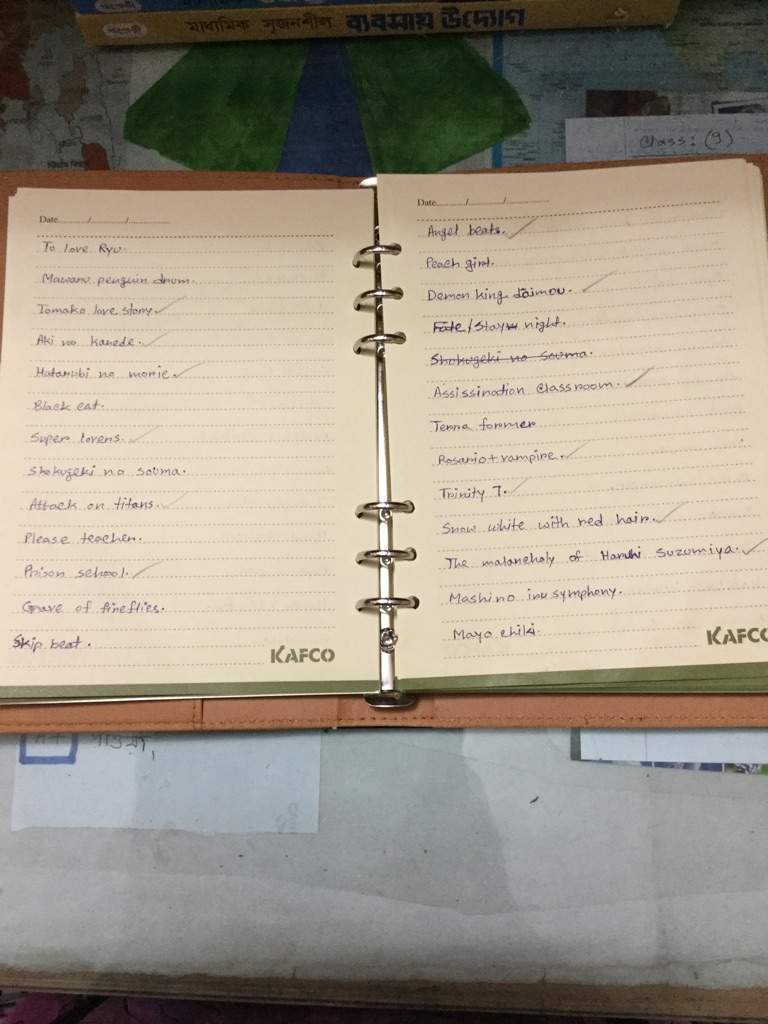 মাধ্যমিক সৃজনশীল ব্যবসায় উদ্যোগ
Class: (9)
Date........./........./.........
To love Ryu.
Mawaru penguin drum.
Tomako love story ✓
Aki no kanede. ✓
Hotarubi no morie ✓
Black cat.
Super lovers. ✓
Shokugeki no souma.
Attack on titans. ✓
Please teacher.
Prison school. ✓
Grave of fireflies.
Skip beat.
KAFCO
Date........./........./.........
Angel beats. ✓
Peach girl.
Demon king daimou. ✓
Fate/Stay night.
Shokugeki no souma.
Assissination Classroom. ✓
Terra former
Rosario + vampire. ✓
Trinity 7. ✓
Snow white with red hair. ✓
The malancholy of Haruhi Suzumiya. ✓
Mashino iru symphony.
Mayo chiki.
KAFCO